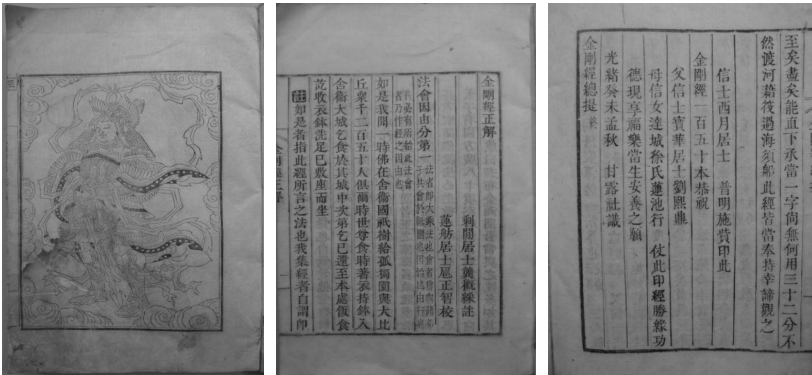 金剛經正解
剩閒居士龔概綵註
蓮舫居士正智校
法會因由分第一
如是我聞一時佛在舍衛國祇樹給孤獨園與大比
丘衆千二百五十人俱爾時世尊食時著衣持鉢入
舍衛大城乞食於其城中次第乞已還至本處飯食
訖收衣鉢洗足已敷座而坐
註如是者指此經所言之法也我集經者自謂卽
至矣盡矣能直下承當一字尙無何用三十二分不
然渡河藉筏過海須船此經皆當奉持幸諦觀之
信士酉月居士 普明施貲印此
金剛經一百五十本恭祝
父信士寶華居士劉熙鼎
母信女達城徐氏蓮池行 仗此印經勝緣功
德現享福樂當生安養之願
光緒癸未孟秋 甘露社識
金剛經總提